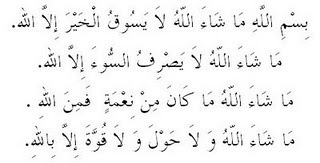 بِسْمِ اللَّهِ مَا شَاءَ اللَّهُ لَا يَسُوقُ الْخَيْرَ إِلاَّ الله.
مَا شَاءَ اللَّهُ لَا يَصْرِفُ السُّوءَ إِلاَّ الله.
مَا شَاءَ اللَّهُ مَا كَانَ مِنْ نِعْمَةٍ فَمِنَ اللهِ .
مَا شَاءَ اللَّهُ وَ لَا حَوْلَ وَ لَا قُوَّةَ إِلاَّ بِاللهِ.